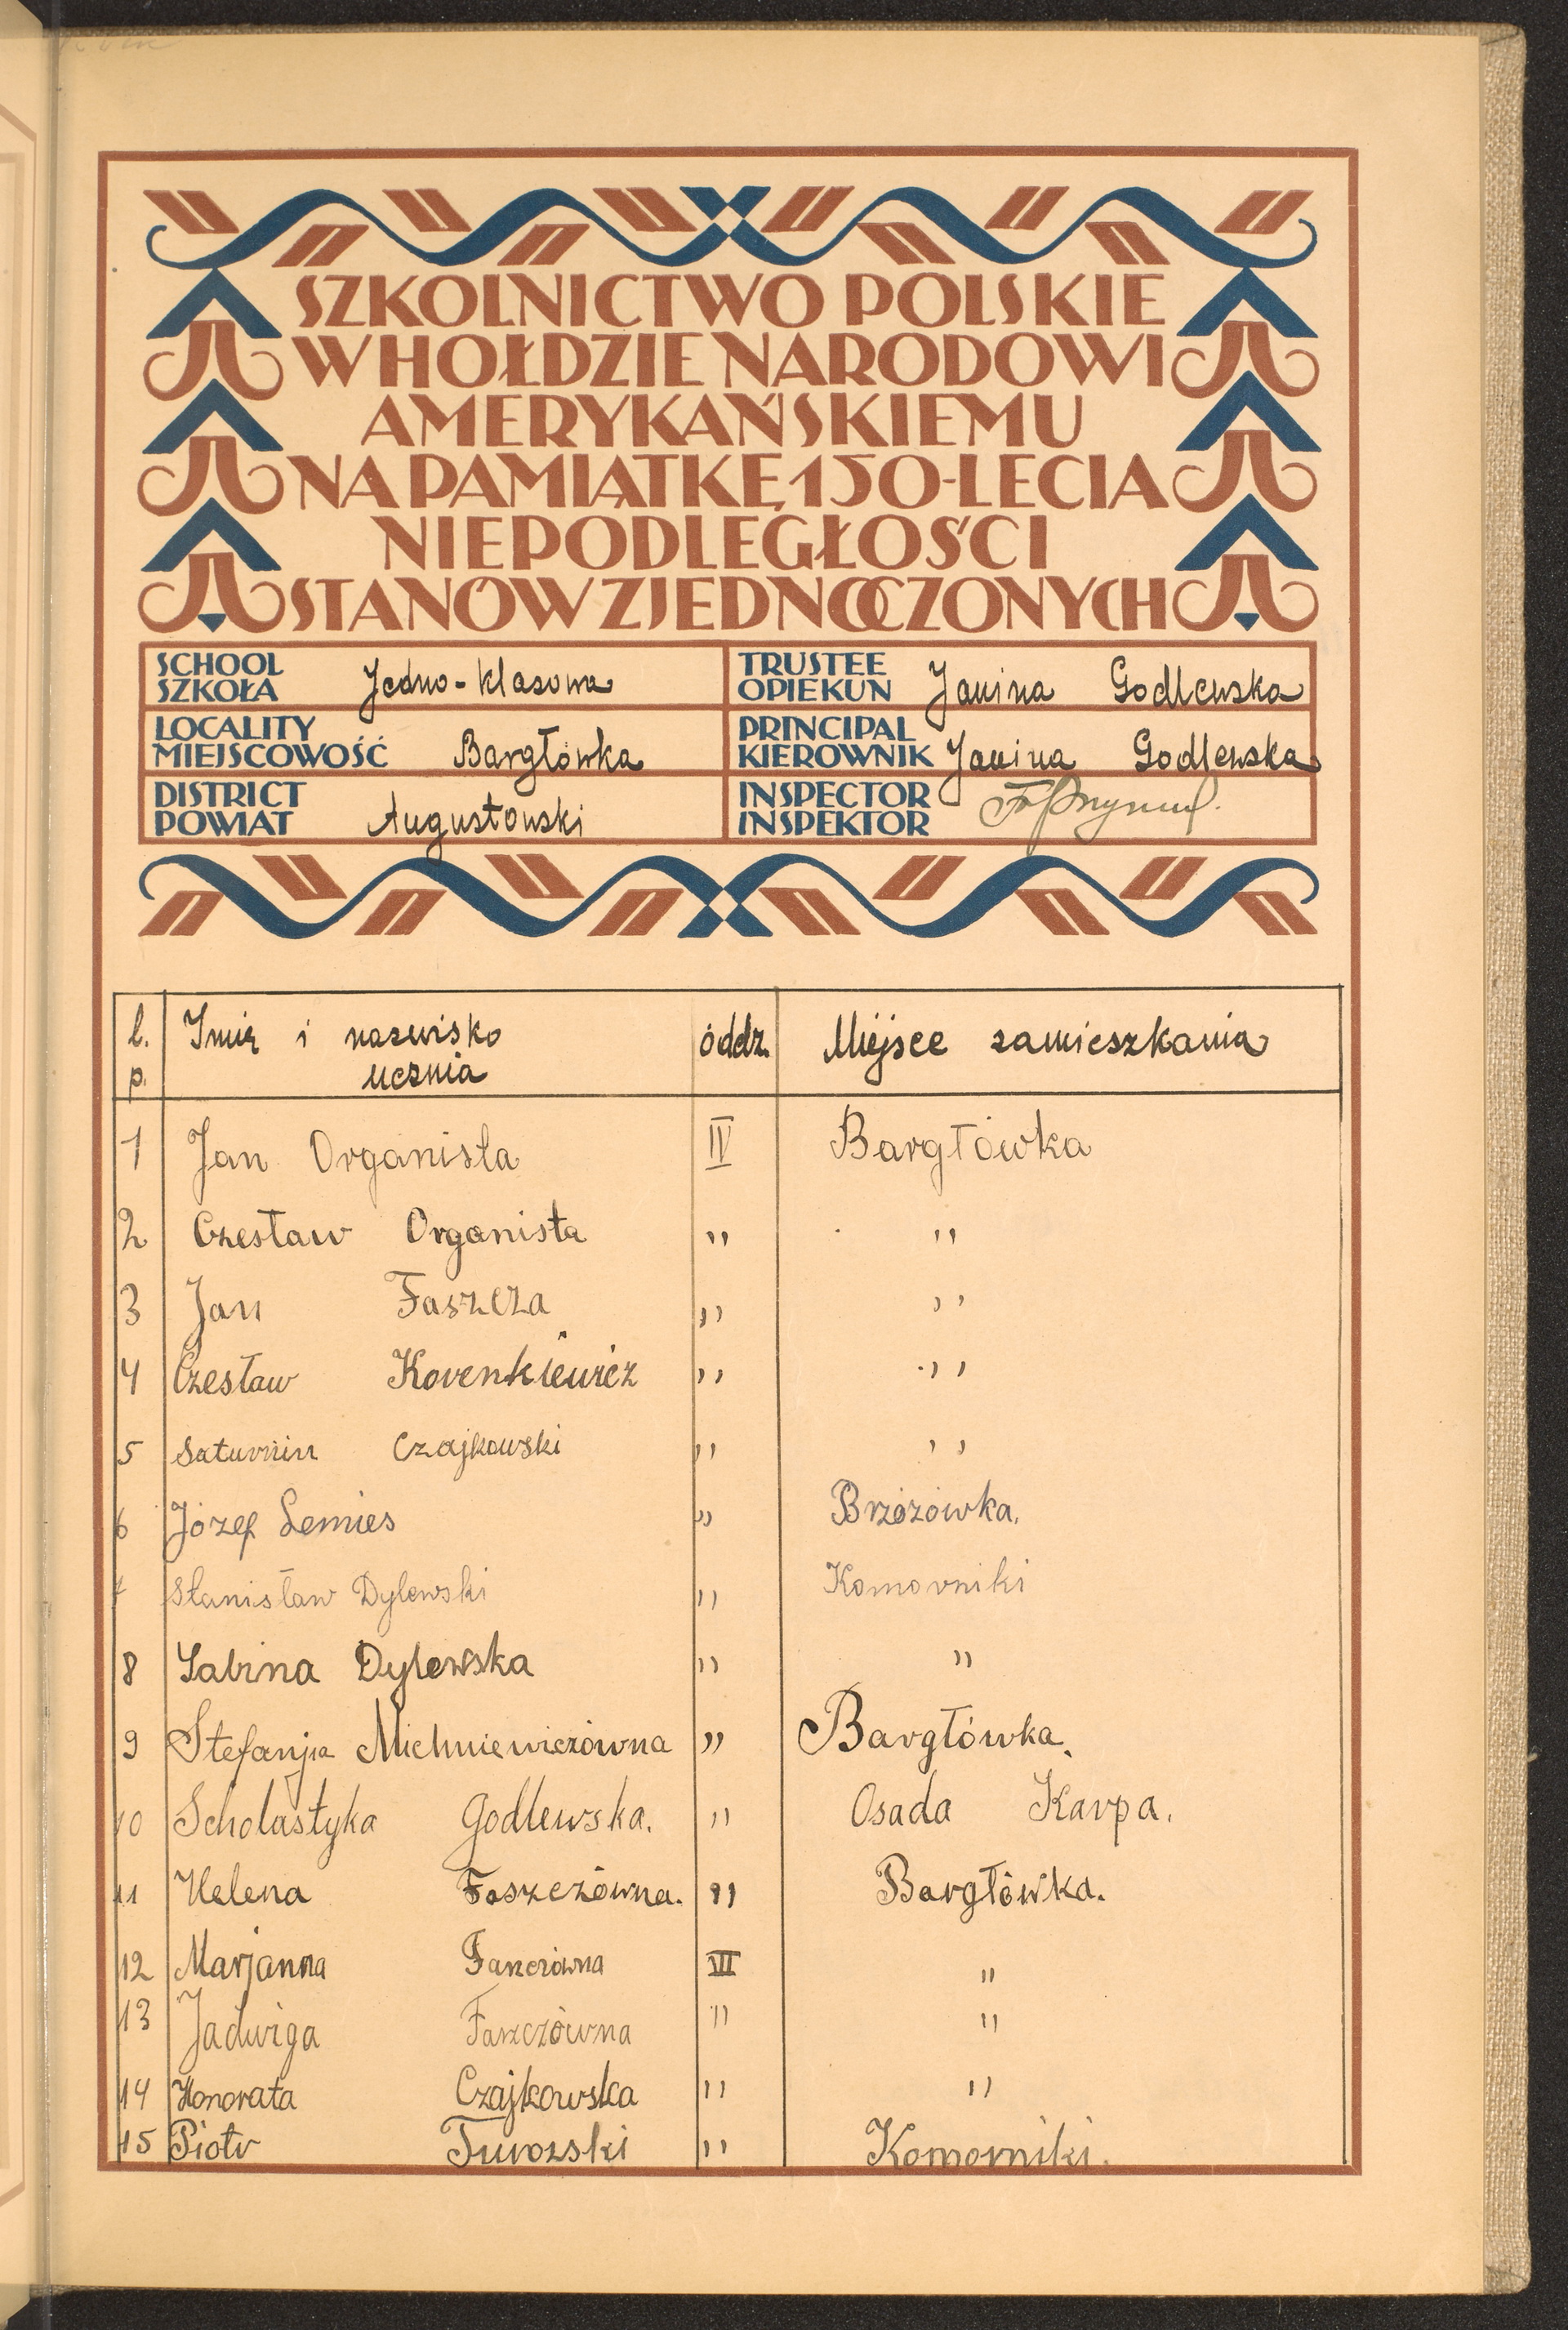 SZKOLNICTWO POLSKIE
W HOŁDZIE NARODOWI
AMERYKAŃSKIEMU
NA PAMIĄTKĘ 150-LECIA
NIEPODLEGŁOŚCI
STANÓW ZJEDNOCZONYCH
SCHOOL
SZKOŁA Jedno-klasowa
TRUSTEE
OPIEKUN Janina Godlewska
LOCALITY
MIEJSCOWOŚĆ Bargłówka
PRINCIPAL
KIEROWNIK Janina Godlewska
DISTRICT
POWIAT Augustowski
INSPECTOR
INSPEKTOR
l. p. Imię i nazwisko ucznia oddz. Miejsce zamieszkania
1 Jan Organista IV Bargłówka
2 Czesław Organista " "
3 Jan Faszcza " "
4 Czesław Korenkiewicz " "
5 Saturnin Czajkowski " "
6 Józef Lemies " Brzozówka.
7 Stanisław Dylewski " Komorniki
8 Sabina Dylewska " "
9 Stefanja Michniewiczówna " Bargłówka.
10 Scholastyka Godlewska. " Osada Karpa.
11 Helena Faszczówna. " Bargłówka.
12 Marjanna III "
13 Jadwiga Faszczówna " "
14 Honorata Czajkowska " "
15 Piotr Turowski " Komorniki.